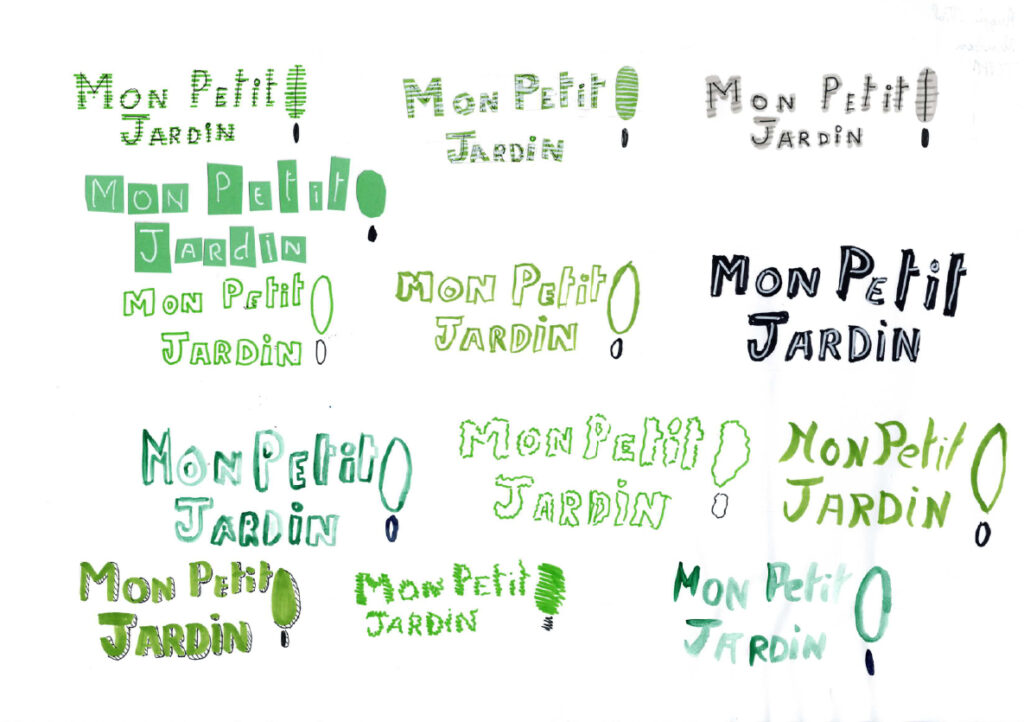 Mon Petit !
Jardin
Mon Petit !
Jardin
Mon Petit !
Jardin
Mon Petit !
Jardin
Mon Petit !
Jardin
Mon Petit !
Jardin
Mon Petit
Jardin
Mon Petit !
Jardin
Mon Petit !
Jardin
Mon Petit !
Jardin
Mon Petit !
Jardin
Mon Petit !
Jardin
Mon Petit !
Jardin